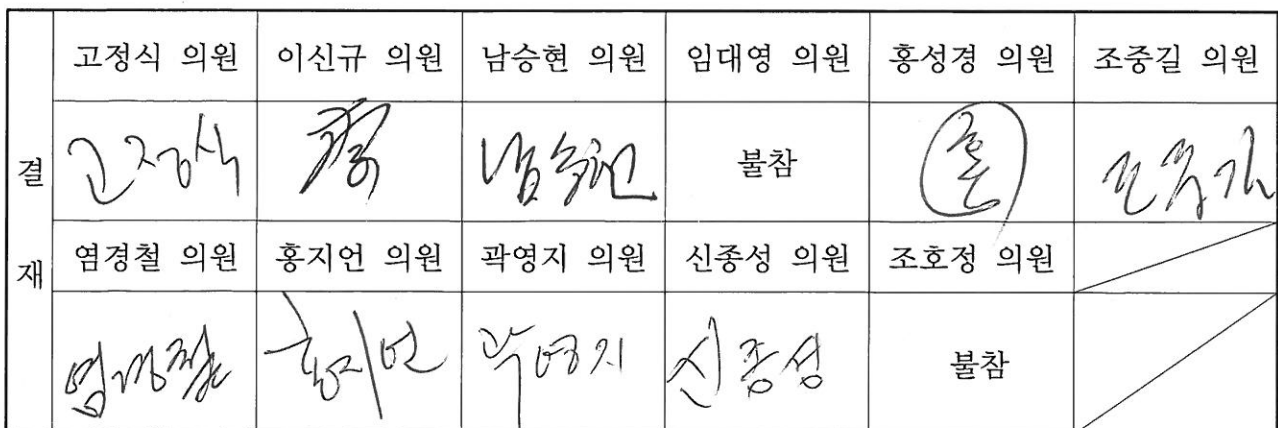 고정식 의원 이신규 의원 남승현 의원 임대영 의원 홍성경 의원 조중길 의원
결 고정식 남승현 불참 홍 조중길
재 염경철 의원 홍지언 의원 곽영지 의원 신종성 의원 조호정 의원
염경철 홍지언 곽영지 신종성 불참